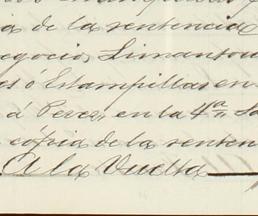 de la sentencia
negocio, Limantour
es ó Estampillas en
á Perez, en la 4ª
copia de la senten
A la Vuelta